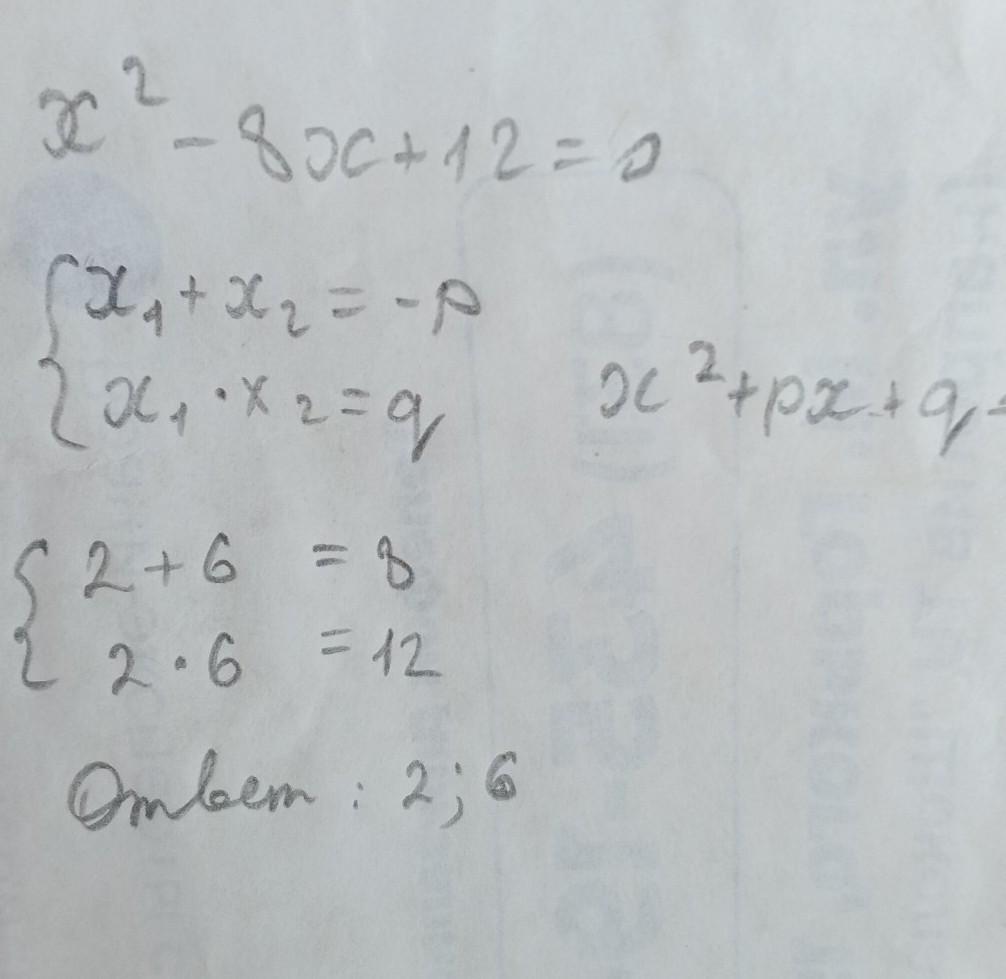 x² - 8x + 12 = 0
x₁ + x₂ = -p
x₁ · x₂ = q
x² + px + q =
2 + 6 = 8
2 · 6 = 12
Ответ : 2; 6